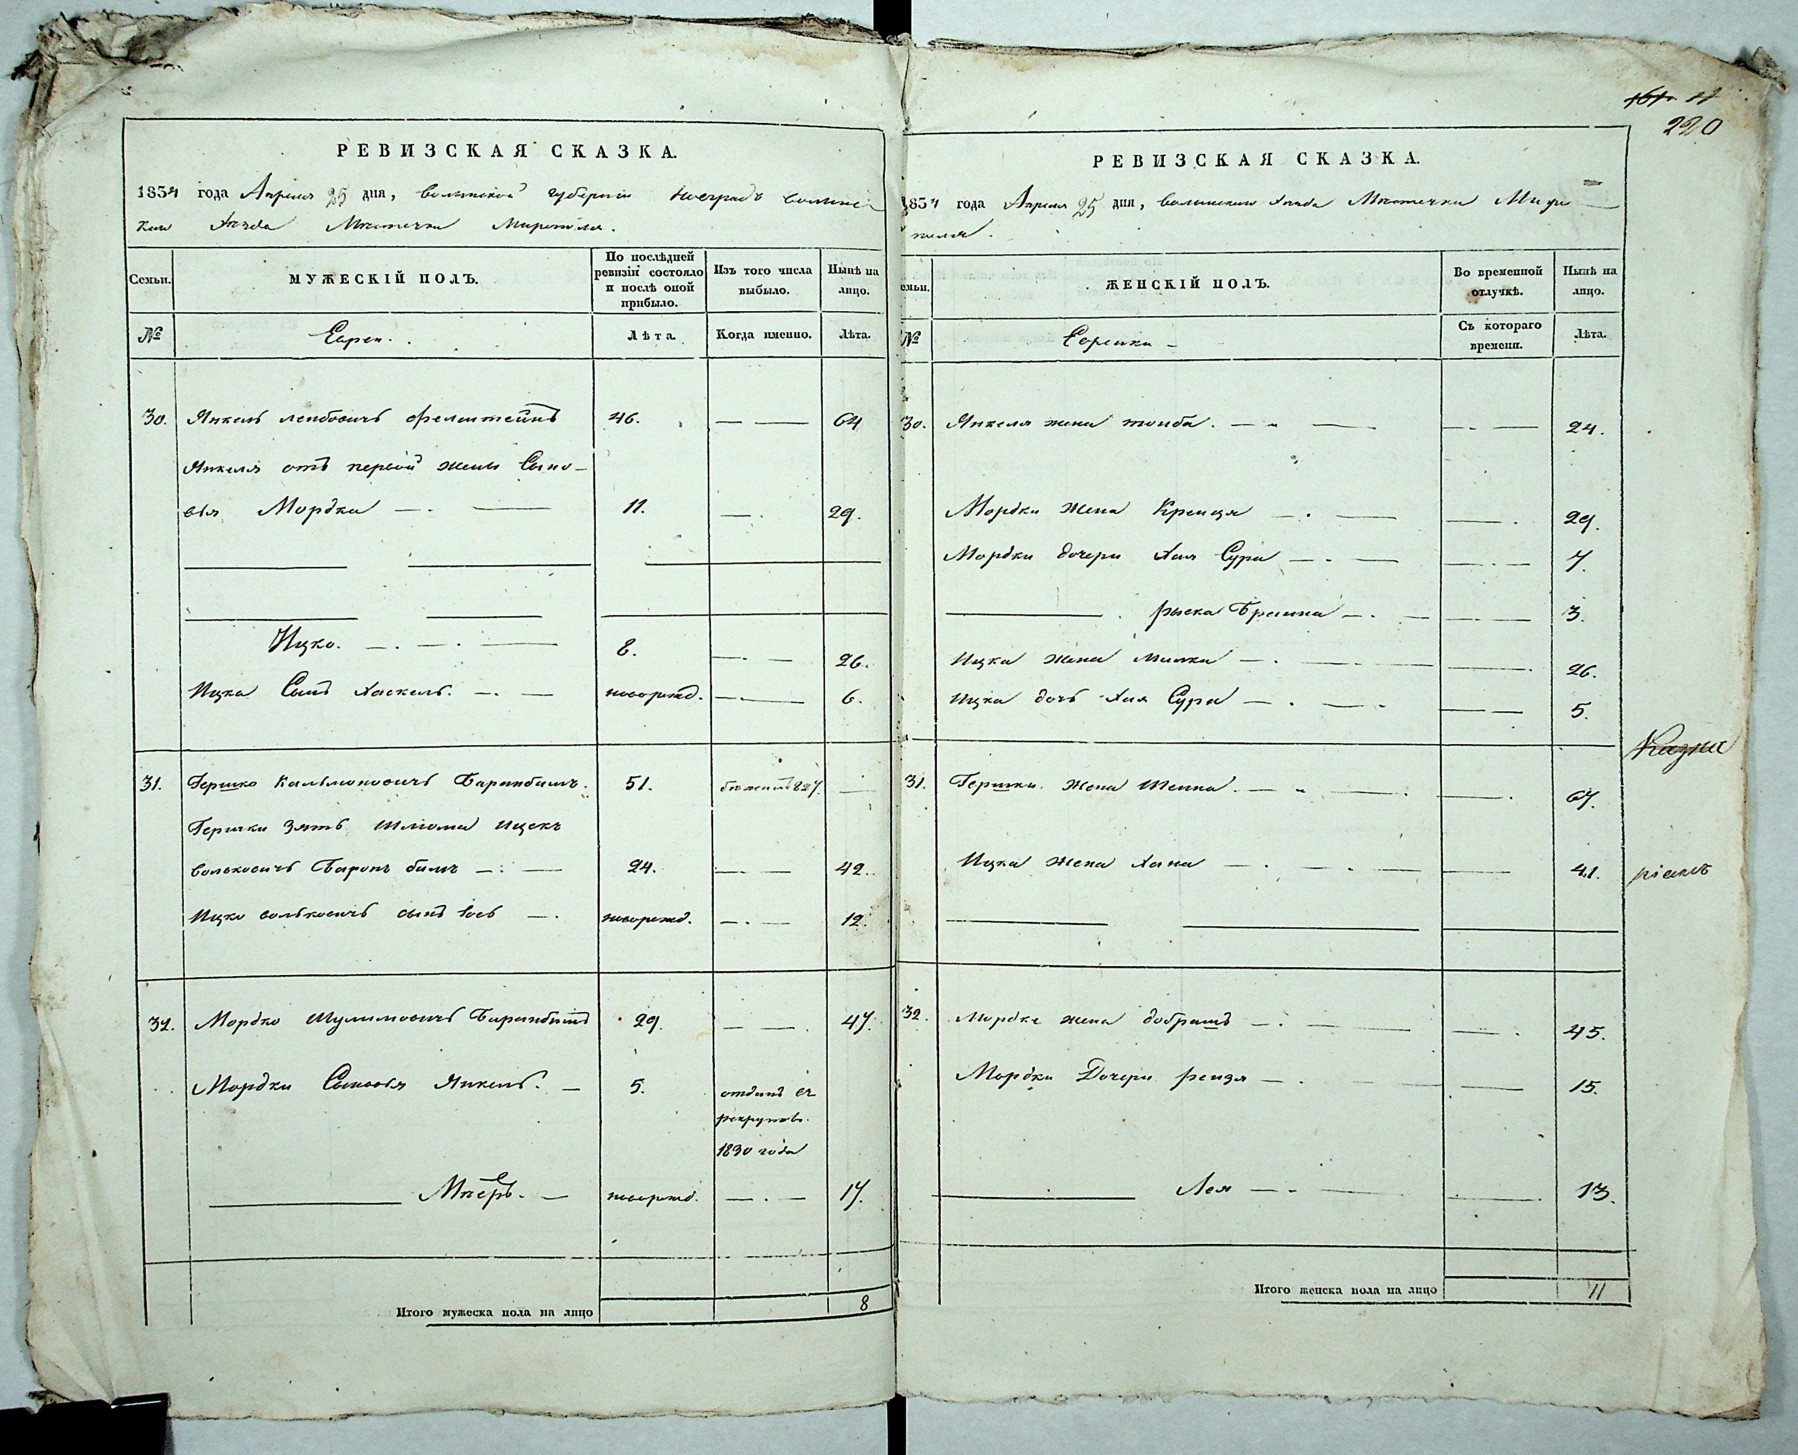 161. 11
220
РЕВИЗСКАЯ СКАЗКА.
1834 года Апреля 25 дня, Волынской губернии Новградъ Волынс-
каго уезда Местечка Мирополя.
Семьи. МУЖЕСКІЙ ПОЛЪ. По послѣдней ревизіи состояло и послѣ оной прибыло. Изъ того числа выбыло. Нынѣ на лицо.
№ Евреи. Лѣта. Когда именно. Лѣта.
30. Янкель Лейбовичъ Фелштейнъ 46. 64
Янкеля отъ первой жены Сыно-
вья Мордко 11. 29.
Ицко. 8. 26.
Ицка Сынъ Хаскель. новорожд. 6.
31. Гершко Кальмоновичъ Баринбаимъ. 51. бежалъ 827.
Гершки Зять Шлиома Ицекъ
Вольковичъ Баронъ баимъ 24. 42.
Ицко Волковичъ сынъ Іось новорожд. 12.
32. Мордко Шулимовичъ Баринбаимъ 29. 47.
Мордки Сыновья Янкель. 5. отданъ въ
рекруты.
1830 года
Мееръ. новорожд. 17.
Итого мужеска пола на лицо 8
РЕВИЗСКАЯ СКАЗКА.
1834 года Апреля 25 дня, Волынскаго уезда Местечка Миро-
поля.
Семьи. ЖЕНСКІЙ ПОЛЪ. Во временной отлучкѣ. Нынѣ на лицо.
№ Еврейки Съ котораго времени. Лѣта.
30. Янкеля жена Тойба. 24.
Мордки Жена Крейця 29.
Мордки дочери Хая Сура 7.
Рыска Браина 3.
Ицка Жена Малка 26.
Ицка дочь Хая Сура 5.
31. Гершки Жена Шейна. 67.
Ицка Жена Хана 41.
32. Мордка жена Добрышъ 45.
Мордки Дочери Рейзя 15.
Лея 13.
Итого женска пола на лицо 11